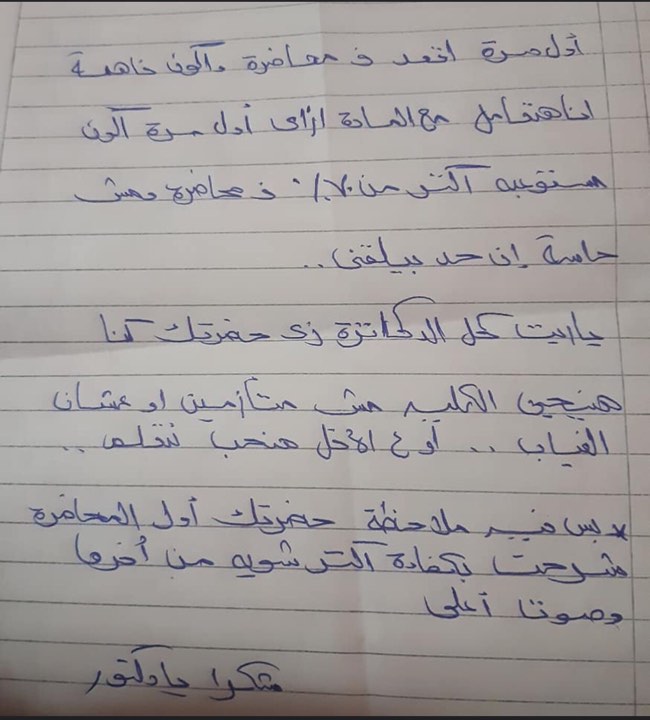 أول مرة اقعد ف محاضرة وأكون فاهمة
انا هتعامل مع المادة ازاى أول مرة أكون
مستوعبه أكتر من ٧٠٪ ف محاضرة ومش
حاسة إن حد بيلقنى..
ياريت كل الدكاترة زى حضرتك كنا
هنيجى الكليه مش متأزمين او عشان
الغياب .. أو ع الأقل هنحب نتعلم ..
* بس فيه ملاحظة حضرتك أول المحاضرة
شرحت بكفاءة أكتر شويه من أخرها
وصوتا أعلى
شكرا يا دكتور